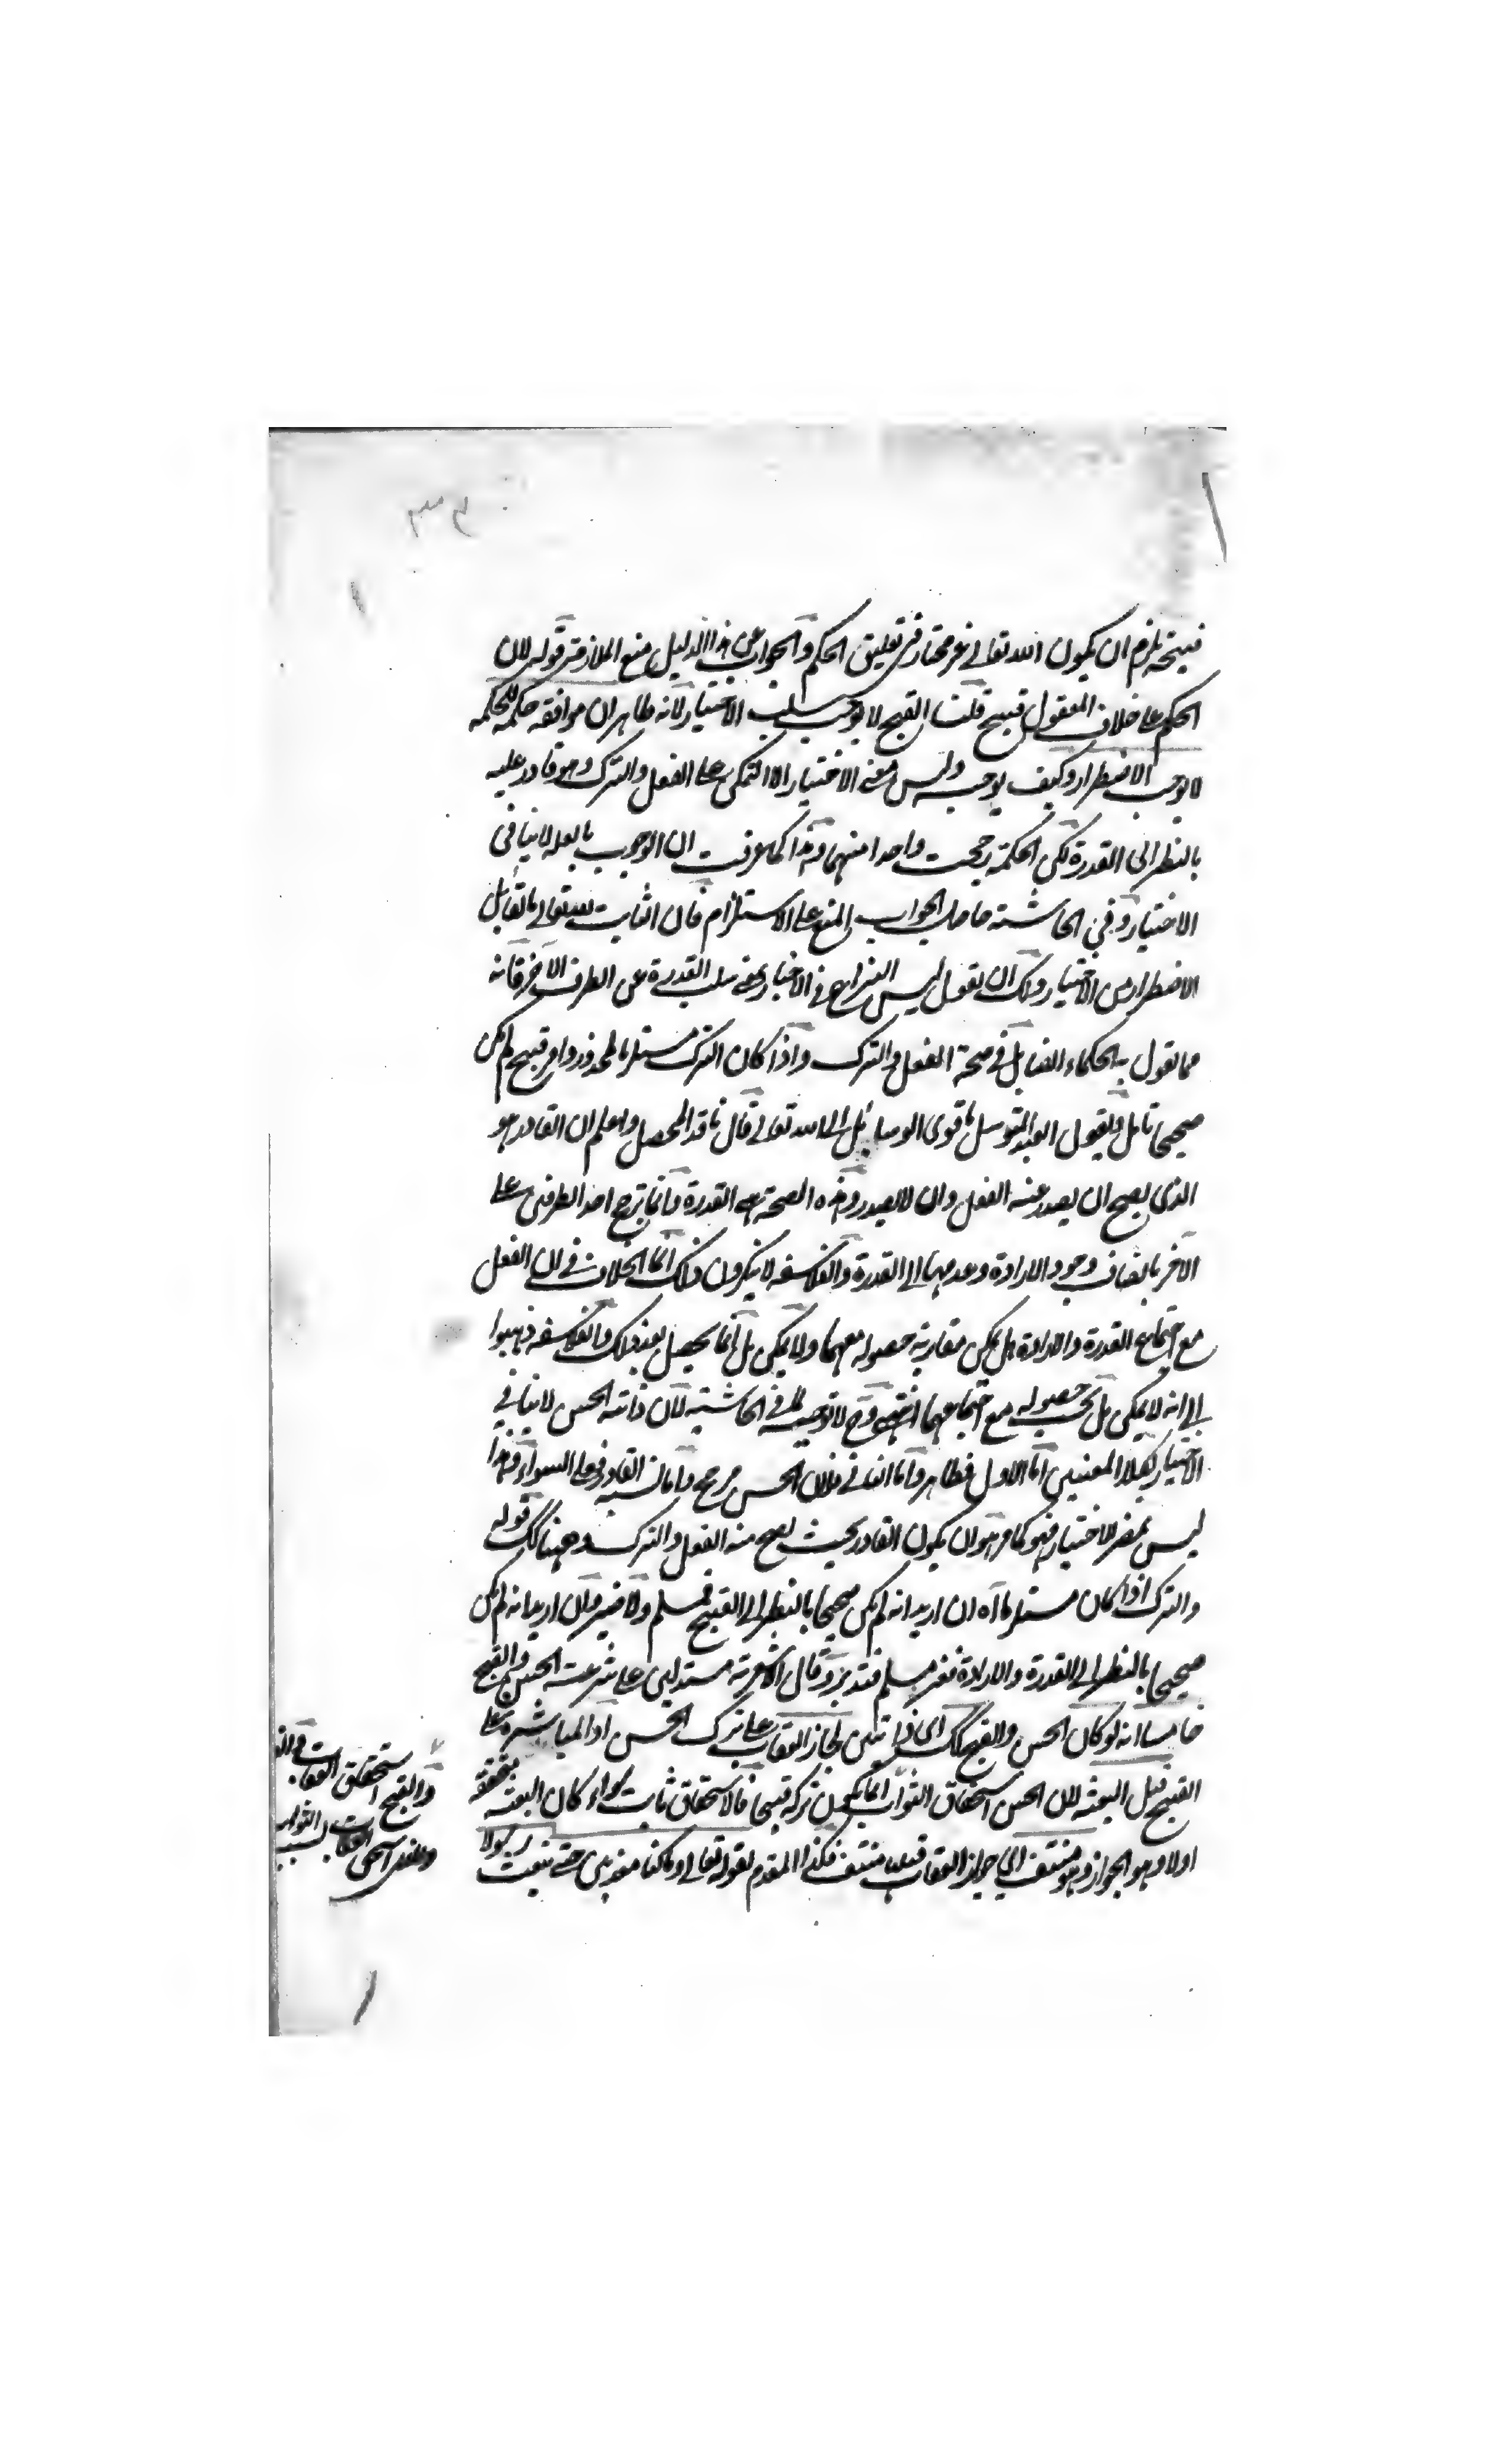 قبيحة يلزم ان يكون الله تعالى غير مختار في تعليق الحكم والجواب عن هذا الدليل منع الملازمة قوله لان
الحكم على خلاف المعقول قبيح قلنا القبيح لا يوجب سلب الاختيار لانه ظاهر ان موافقة حكمه للحكمة
لا يوجب الاضطرار وكيف يوجبه وليس معنى الاختيار الا التمكن على الفعل والترك وهو قادر عليه
بالنظر الى القدرة لكن الحكمة رجحت واحدا منهما وهذا كما عرفت ان الوجوب بالعلة لا ينافي
الاختيار وفي الحاشية حاصل الجواب المنع على الاستلزام فان الثابت له تعالى ما يقابل
الاضطرار من الاختيار ولك ان تقول ليس النزاع في الاختيار بمعنى سلب القدرة عن الطرف الآخر فانه
مما تقول به الحكماء القابل في صحة الفعل والترك واذا كان الترك مستلزما لمحذور وامر قبيح لم يكن
صحيحا تامل ويقول العبد المتوسل باقوى الوسائل الى الله تعالى قال ناقد المحصل واعلم ان القادر هو
الذي يصح ان يصدر عنه الفعل وان لا يصدر وهذه الصحة هي القدرة وانما يترجح احد الطرفين على
الآخر بانضياف وجود الارادة وعدمها الى القدرة والفلاسفة لا ينكرون ذلك انما الخلاف في ان الفعل
مع اجتماع القدرة والارادة هل يمكن مقارنة حصوله معهما ولا يمكن بل انما يحصل بعد ذلك والفلاسفة ذهبوا
الى انه لا يمكن بل يجب حصوله مع اجتماعهما انتهى وح لا توجيه لما في الحاشية لان ذاتية الحسن لا ينافي
الاختيار بكلا المعنيين اما الاول فظاهر واما الثاني فلان الحسن مرجح واما نسبة القادر فعلى السواء وهذا
ليس بمضر للاختيار فهو كما مر هو ان يكون القادر بحيث يصح منه الفعل والترك وهنا لك قوله
والترك اذا كان مستلزما اه ان اريد انه لم يكن صحيحا بالنظر الى القبيح فمسلم ولا ضير وان اريد انه لم يكن
صحيحا بالنظر الى القدرة والارادة فغير مسلم فتدبر وقال الاشعرية مستدلين على شرعية الحسن والقبح
خامسا انه لو كان الحسن والقبح كك اي ذاتيين لجاز العقاب على ترك الحسن او المباشرة على
القبيح قبل البعثة لان الحسن استحقاق الثواب انما يكون تركه قبيحا فالاستحقاق ثابت سواء كان البعثة متحققة
اولا وهو الجواز وهو منتف اي جواز العقاب قبله منتف فكذا المقدم لقوله تعالى وما كنا معذبين حتى نبعث رسولا
والقبح استحقاق العقاب في